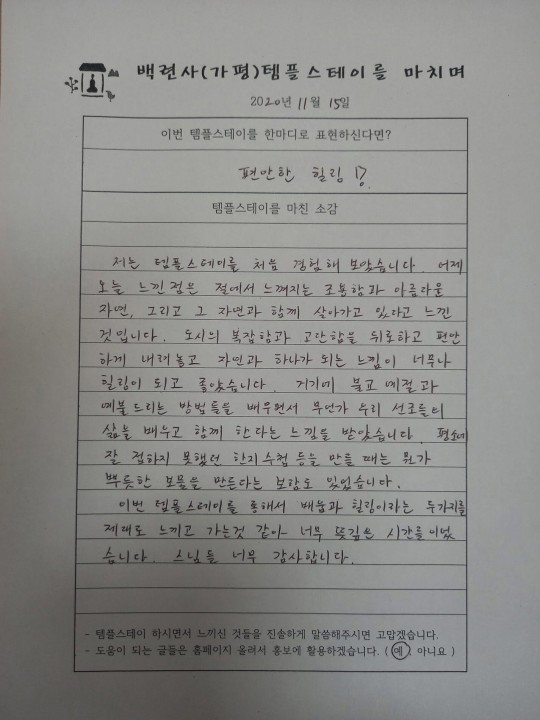 백련사(가평)템플스테이를 마치며
2020년 11월 15일
이번 템플스테이를 한마디로 표현하신다면?
편안한 힐링!?
템플스테이를 마친 소감
저는 템플스테이를 처음 경험해 보았습니다. 어제
오늘 느낀점은 절에서 느껴지는 조용함과 아름다운
자연, 그리고 그 자연과 함께 살아가고 있다고 느낀
것입니다. 도시의 복잡함과 고단함을 뒤로하고 편안
하게 내려놓고 자연과 하나가 되는 느낌이 너무나
힐링이 되고 좋았습니다. 거기에 불교 예절과
예불 드리는 방법들을 배우면서 무언가 우리 선조들의
삶을 배우고 함께 한다는 느낌을 받았습니다. 평소에
잘 접하지 못했던 한지수첩 등을 만들 때는 뭔가
뿌듯한 보물을 만든다는 보람도 있었습니다.
이번 템플스테이를 통해서 배움과 힐링이라는 두가지를
제대로 느끼고 가는것 같아 너무 뜻깊은 시간들이었
습니다. 스님들 너무 감사합니다.
- 템플스테이 하시면서 느끼신 것들을 진솔하게 말씀해주시면 고맙겠습니다.
- 도움이 되는 글들은 홈페이지 올려서 홍보에 활용하겠습니다. ( 예 , 아니요 )